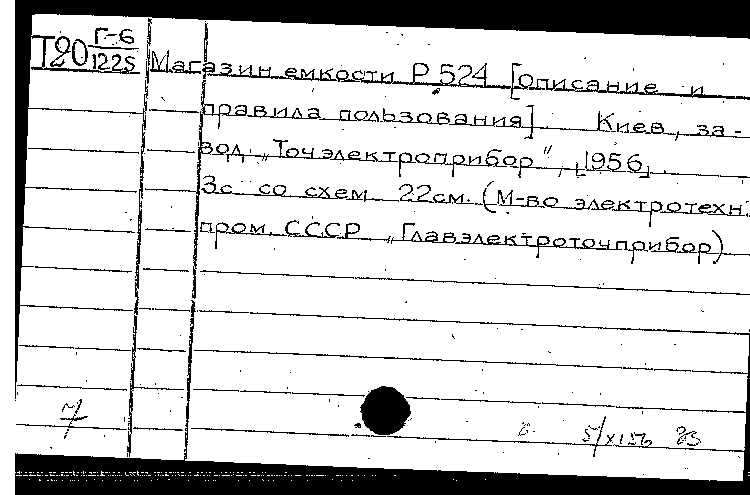 Т20 Г-6
1225
Магазин емкости Р 524 [описание и
правила пользования] Киев, за-
вод „Точэлектроприбор“, [1956].
3с. со схем. 22см. (М-во электротехн.
пром. СССР „Главэлектроточприбор)
5/XI 56